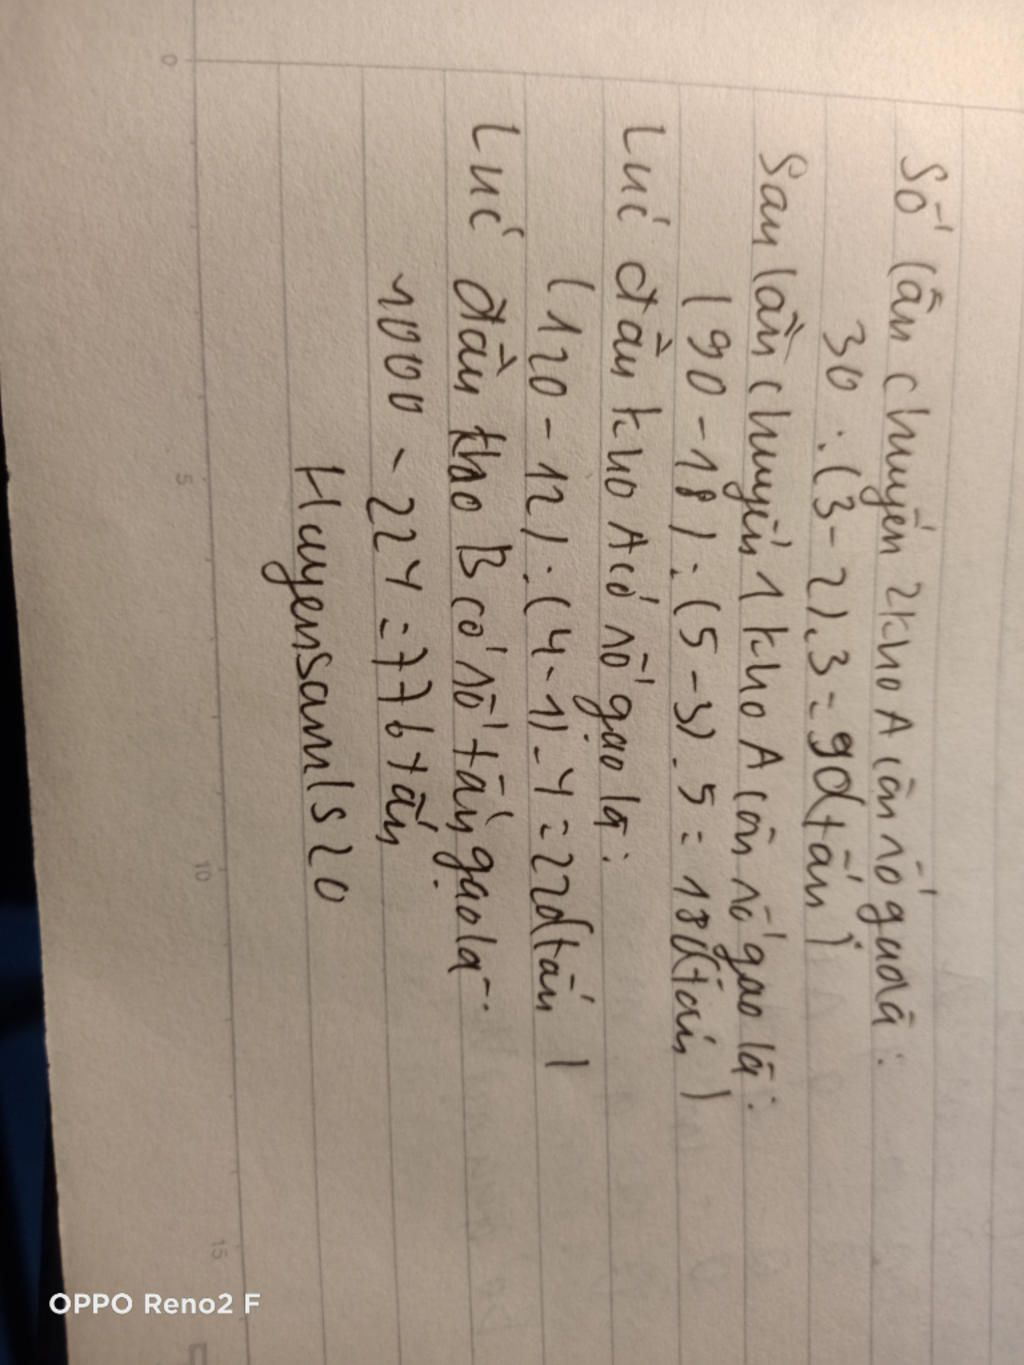 Số lần chuyển 2 kho A còn số guaà:
30 : (3-2).3 = 90(tấn)
Sau lần chuyển 1 kho A còn số gạo là:
(90-18) : (5-3).5 = 180(tấn)
Lúc đầu kho A có số gạo là:
(120-12) : (4-1)-4 = 220(tấn)
Lúc đầu kho B có số tấn gạo là:
1000 - 224 = 776 tấn
Huyensamls20
0
5
10
15
OPPO Reno2 F